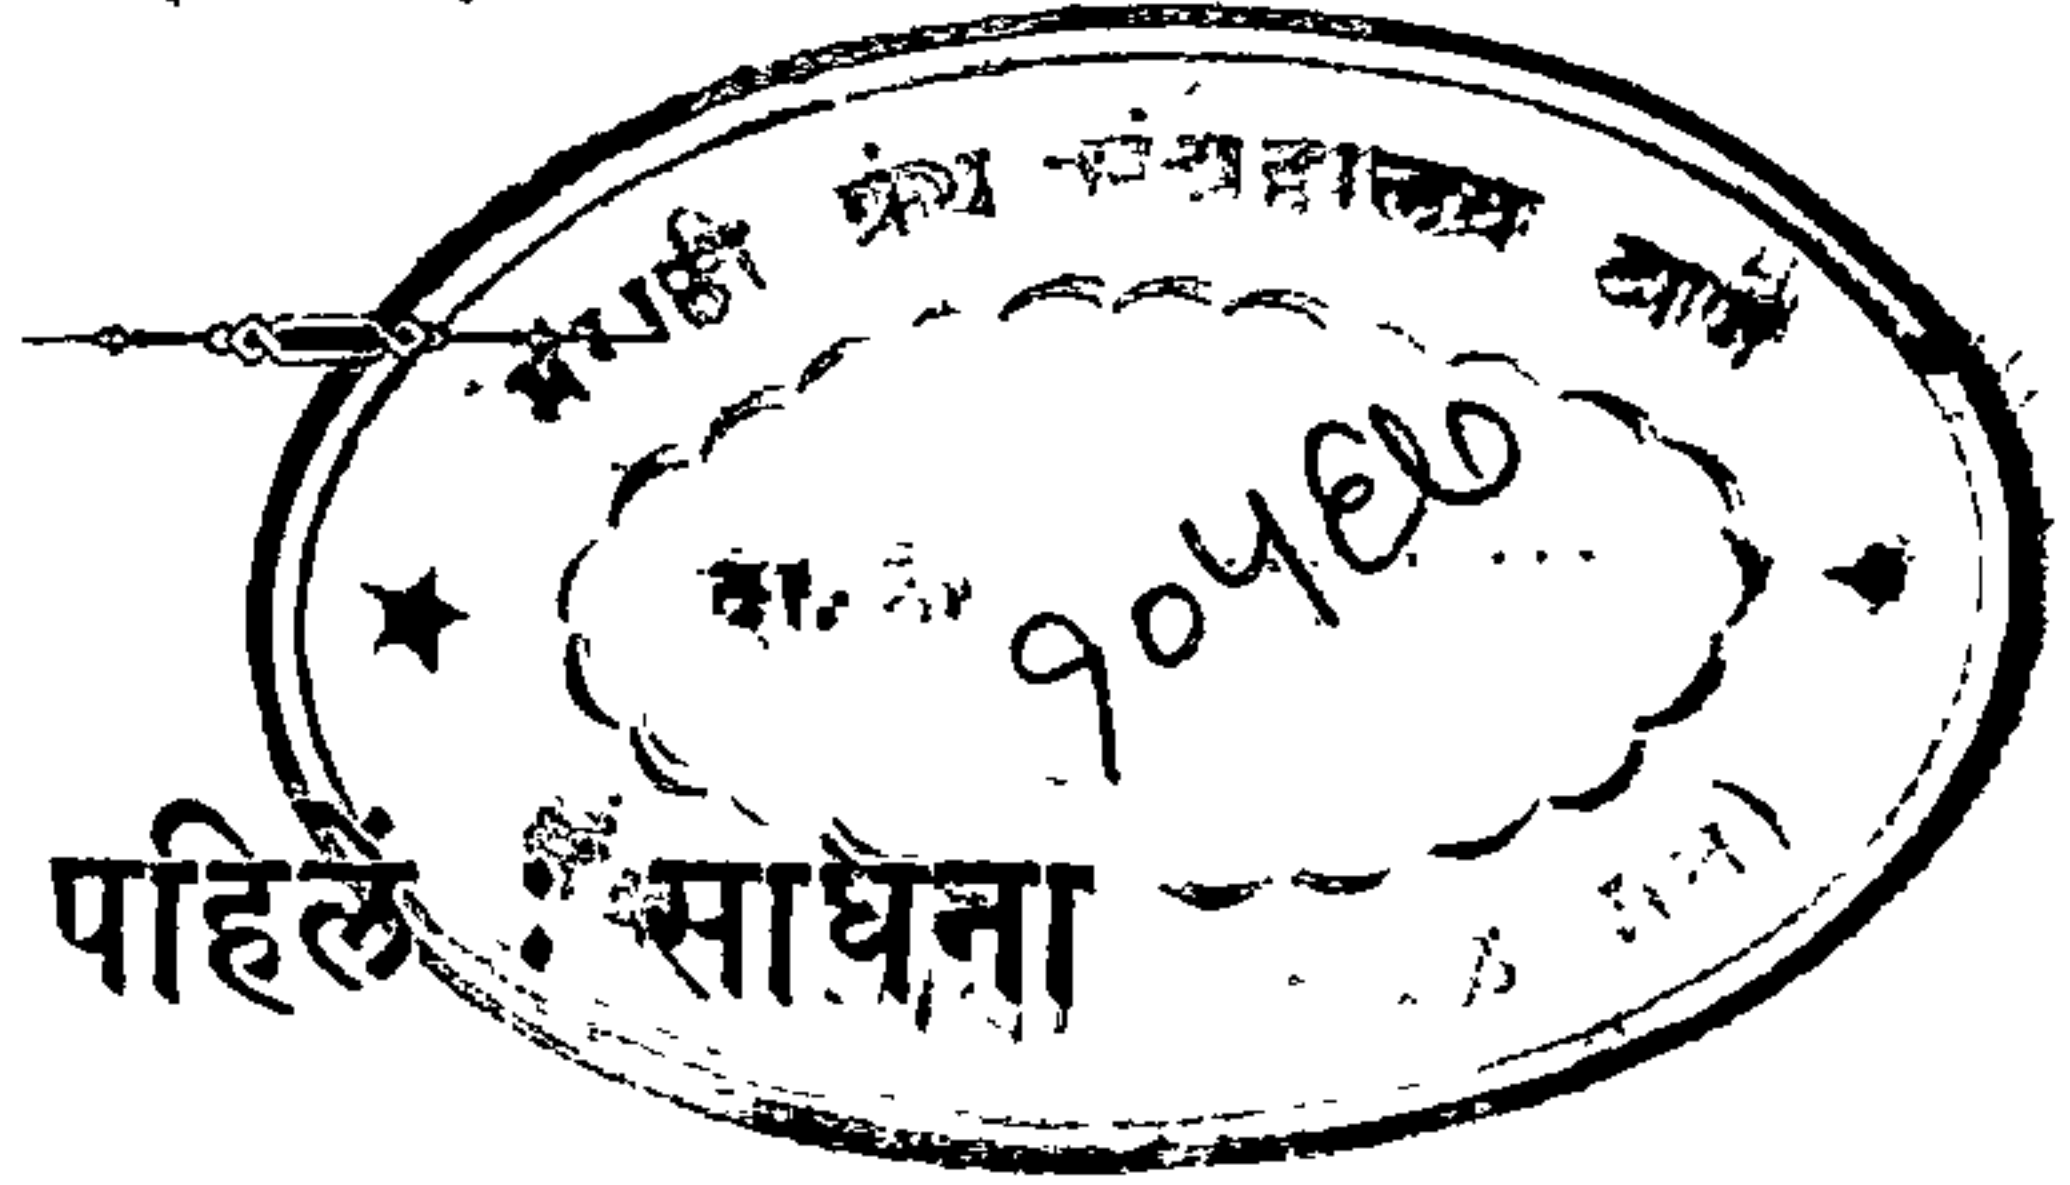 मराठी ग्रंथ संग्रहालय ठाणें
दा. क्र. १०५६७
पहिलें : साधना